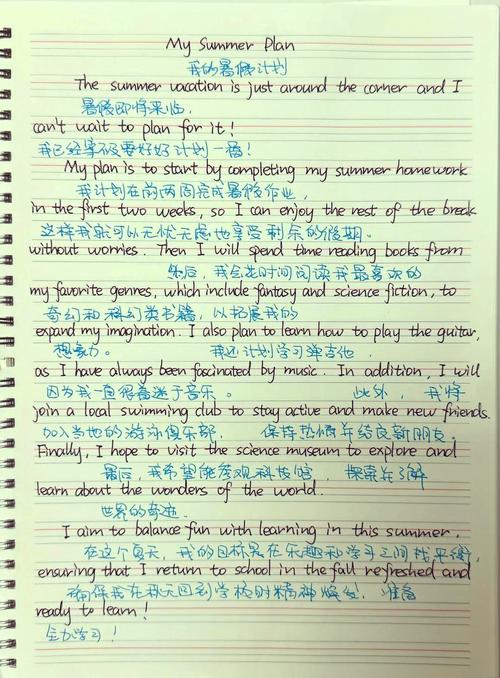 My Summer Plan
我的暑假计划
The summer vacation is just around the corner and I
暑假即将来临，
can't wait to plan for it!
我已经等不及要好好计划一番！
My plan is to start by completing my summer homework
我计划在前两周完成暑假作业，
in the first two weeks, so I can enjoy the rest of the break
这样我就可以无忧无虑地享受剩余的假期。
without worries. Then I will spend time reading books from
然后，我会花时间阅读我最喜欢的
my favorite genres, which include fantasy and science fiction, to
奇幻和科幻类书籍，以拓展我的
expand my imagination. I also plan to learn how to play the guitar,
想象力。 我还计划学习弹吉他，
as I have always been fascinated by music. In addition, I will
因为我一直很着迷于音乐。 此外，我将
join a local swimming club to stay active and make new friends.
加入当地的游泳俱乐部， 保持热情并结交新朋友。
Finally, I hope to visit the science museum to explore and
最后，我希望能参观科技馆， 探索并了解
learn about the wonders of the world.
世界的奇迹。
I aim to balance fun with learning in this summer,
在这个夏天，我的目标是在乐趣和学习之间找平衡，
ensuring that I return to school in the fall refreshed and
确保我在秋天回到学校时精神焕发，准备
ready to learn!
全力学习！